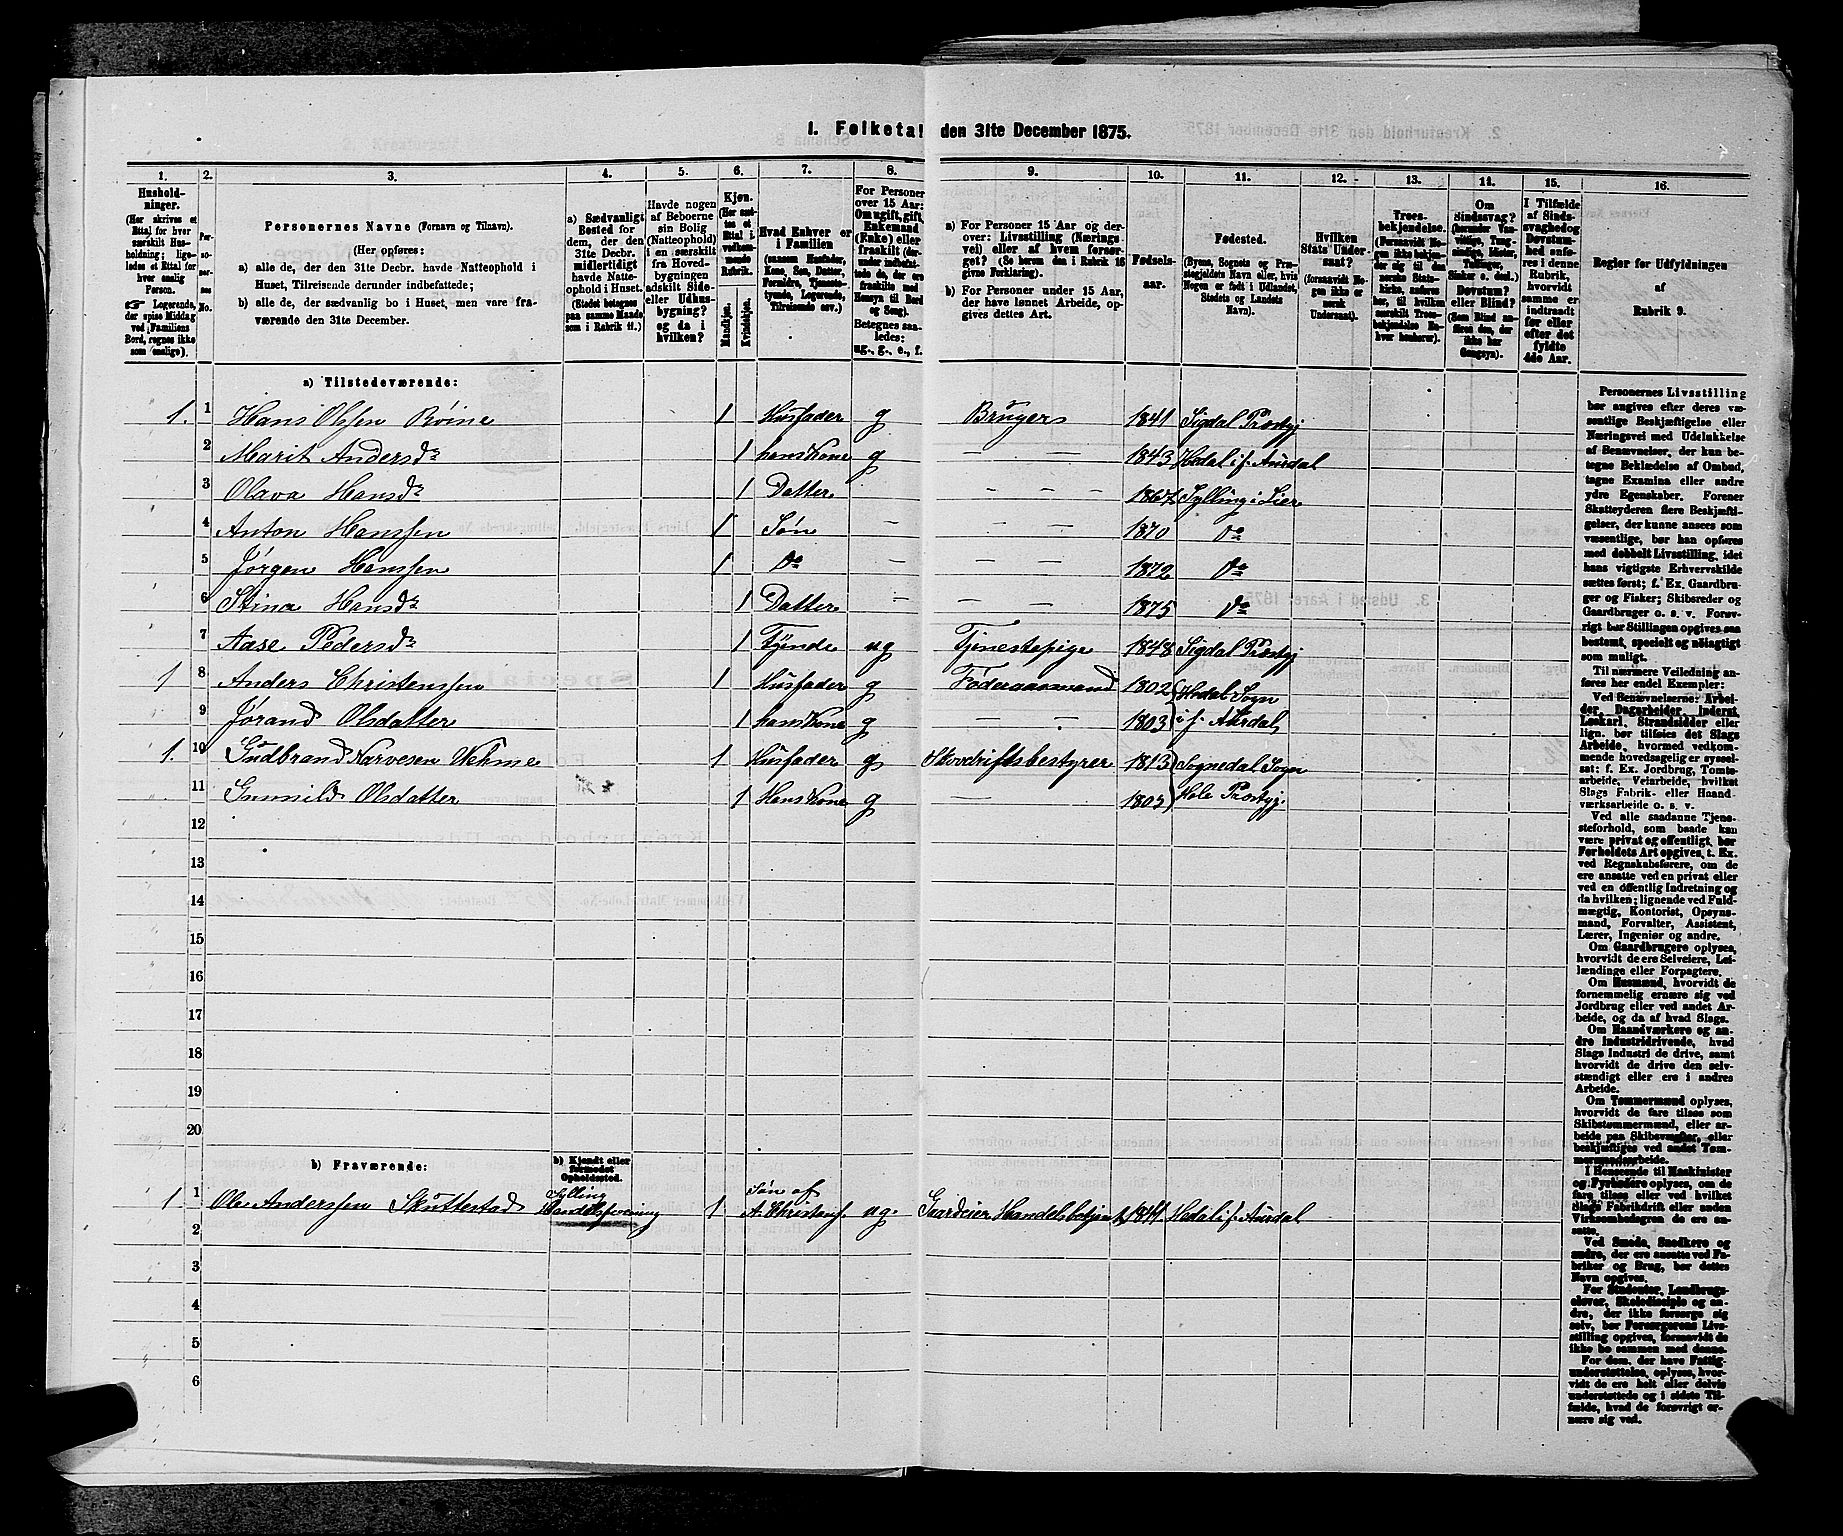 I. Folketal den 31te December 1875.
1. 2. 3. 4. 5. 6. 7. 8. 9. 10. 11. 12. 13. 14. 15. 16.
Husholdninger. (Her skrives et Ettal for hver særskilt Husholdning; ligeledes et Ettal for hver enslig Person. ☞ Logerende, der spise Middag ved Familiens Bord, regnes ikke som enslige).
Personernes No.
Personernes Navne (Fornavn og Tilnavn).
(Her opføres:
a) alle de, der den 31te Decbr. havde Natteophold i Huset, Tilreisende derunder indbefattede;
b) alle de, der sædvanlig bo i Huset, men vare fraværende den 31te December.
a) Sædvanligt Bosted for dem, der den 31te Decbr. midlertidigt havde Natteophold i Huset. (Stedet betegnes paa samme Maade som i Rubrik 11.)
Havde nogen af Beboerne sin Bolig (Natteophold) i en særskilt fra Hovedbygningen adskilt Side- eller Udhusbygning? og da i hvilken?
Kjøn. (Her sættes et Ettal i vedkommende Rubrik.
Mandkjøn. Kvindekjøn.
Hvad Enhver er i Familien (saasom Husfader, Kone, Søn, Datter, Forældre, Tjenestetyende, Logerende, Tilreisende osv.)
For Personer over 15 Aar: Om ugift, gift, Enkemand (Enke) eller fraskilt (derunder indbefattede de, der ere fraskilte med Hensyn til Bord og Seng). Betegnes saaledes: ug., g., e., f.
a) For Personer 15 Aar og derover: Livsstilling (Næringsvei) eller af hvem forsørget? (Se herom den i Rubrik 16 givne Forklaring).
b) For Personer under 15 Aar, der have lønnet Arbeide, opgives dettes Art.
Fødselsaar.
Fødested. (Byens, Sognets og Præstegjeldets Navn eller, hvis Nogen er født i Udlandet, Stedets og Landets Navn).
Hvilken Stats Undersaat? (forsaavidt Nogen ikke er norsk Undersaat).
Troesbekjendelse. (Forsaavidt Nogen ikke bekjender sig til den norske Statskirke, anføres her, til hvilken særskilt Troesbekjendelse Enhver henhører).
Om Sindssvag? (herunder Vanvittige, Tungsindige, Idioter, Tullinger, Sinker o. desl.) Døvstum? eller Blind? (Som Blind anføres den, der ikke har Gangsyn).
I Tilfælde af Sindssvaghed og Døvstumhed anføres i denne Rubrik, hvorvidt samme er indtraadt før eller efter det fyldte 4de Aar.
Regler for Udfyldningen af Rubrik 9.
a) Tilstedeværende:
1. 1 Hans Olssen Røine 1 Husfader g Bruger 1841 Sigdal Præstgj
2 Marit Andersdr 1 hans Kone g — — 1843 Hedal i f. Aurdal
3 Olava Hansdr 1 Datter — — — 1867 Sylling i Lier
4 Anton Hanssen 1 Søn — — — 1870 do
5 Jørgen Hanssen 1 do — — — 1872 do
6 Stina Hansdr 1 Datter — — — 1875 do
7 Aase Pedersdr 1 Tyende ug Tjenestepige 1848 Sigdal Præstgj
1 8 Anders Christenssen 1 Husfader g Føderaasmand 1802 Hedal Sogn
9 Jørand Olsdatter 1 hans Kone g — — 1803 i f. Aurdal
1. 10 Gudbrand Narvesen Vehme 1 Husfader g Skovdriftsbestyrer 1813 Sognedal Sogn
11 Gunnild Olsdatter 1 Hans Kone g — — 1805 Hole Præstgj.
12
13
14
15
16
17
18
19
20
b) Fraværende: b) Kjendt eller formodet Opholdssted.
1. 1 Ole Anderssen Skuttestad Sylling Handelsforening 1 Søn af A. Christens. ug. Gaardeier Handelsbetjent 1841. Hedal i f. Aurdal
2
3
4
5
6
Personernes Livsstilling bør angives efter deres væsentlige Beskjæftigelse eller Næringsvei med Udelukkelse af Benævnelser, der kun betegne Beklædelse af Ombud, tagne Examina eller andre ydre Egenskaber. Forener Skatteyderen flere Beskjæftigelser, der kunne ansees som væsentlige, bør han opføres med dobbelt Livsstilling, idet hans vigtigste Erhvervskilde sættes først; f. Ex. Gaardbruger og Fisker; Skibsreder og Gaardbruger o. s. v. Forøvrigt bør Stillingen opgives saa bestemt, specielt og nøiagtigt som muligt.
Til nærmere Veiledning anføres her endel Exempler:
Ved Benævnelserne: Arbeider, Dagarbeider, Inderst, Løskarl, Strandsidder eller lign. bør tilføies det Slags Arbeide, hvormed vedkommende hovedsagelig er sysselsat; f. Ex. Jordbrug, Tomtearbeide, Veiarbeide, hvilket Slags Fabrik- eller Haandværksarbeide o. s. v.
Ved alle saadanne Tjenesteforhold, som baade kan være privat og offentligt, bør Forholdets Art opgives, t. Ex. ved Regnskabsførere, om de ere ansatte ved en privat eller ved en offentlig Indretning og da hvilken; lignende ved Fuldmægtig, Kontorist, Opsynsmand, Forvalter, Assistent, Lærer, Ingeniør og andre.
Om Gaardbrugere oplyses, hvorvidt de ere Selveiere, Leilændinge eller Forpagtere.
Om Husmænd, hvorvidt de fornemmelig ernære sig ved Jordbrug eller ved andet Arbeide, og da af hvad Slags.
Om Haandværkere og andre Industridrivende, hvad Slags Industri de drive, samt hvorvidt de drive den selvstændigt eller ere i andres Arbeide.
Om Tømmermænd oplyses, hvorvidt de fare tilsøs som Skibstømmermænd, eller arbeide paa Skibsværfter, eller beskjæftiges ved andet Tømmermandsarbeide.
I Henseende til Maskinister og Fyrbødere oplyses, om de fare tilsøs eller ved hvilket Slags Fabrikdrift eller anden Virksomhed de ere ansatte.
Ved Smede, Snedkere og andre, der ere ansatte ved Fabriker og Brug, bør dettes Navn opgives.
For Studenter, Landbrugselever, Skoledisciple og andre, der ikke forsørge sig selv, bør Forsørgerens Livsstilling opgives, forsaavidt de ikke bo sammen med denne.
For dem, der have Fattigunderstøttelse, oplyses, hvorvidt de ere helt eller delvis understøttede og i sidste Tilfælde, hvad de forøvrigt ernære sig ved.